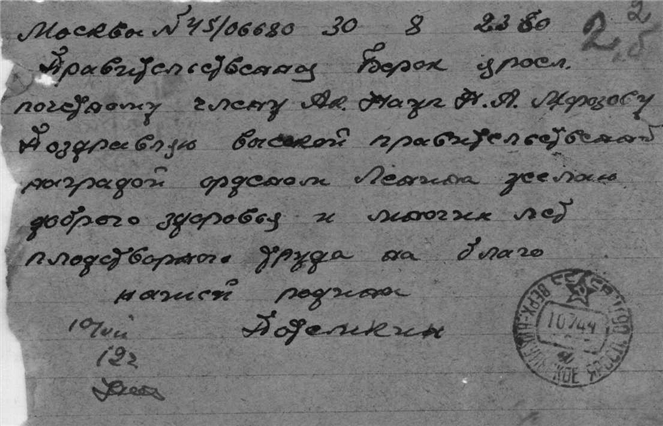 Москвы N 45/06680 30 8 23 50
2
2,б
Правительственная Борок яросл.
почетному члену Ак. Наук Н.А. Морозову
Поздравляю высокой правительственной
наградой орденом Ленина желаю
доброго здоровья и многих лет
плодотворного труда на благо
нашей родины
Потемкин
10/VII
12ч